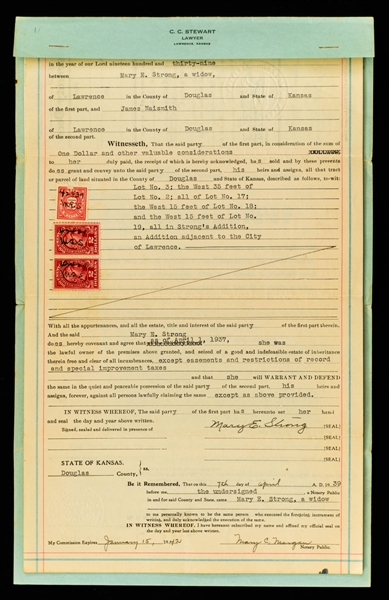 C. C. STEWART
LAWYER
LAWRENCE, KANSAS
in the year of our Lord nineteen hundred and thirty-nine
between Mary E. Strong, a widow,
of Lawrence in the County of Douglas and State of Kansas
of the first part, and James Naismith
of Lawrence in the County of Douglas and State of Kansas
of the second part.
Witnesseth, That the said party of the first part, in consideration of the sum of
One Dollar and other valuable considerations
to her duly paid, the receipt of which is hereby acknowledged, has sold and by these presents
does grant and convey unto the said party of the second part, his heirs and assigns, all that tract
or parcel of land situated in the County of Douglas and State of Kansas, described as follows, to-wit:
Lot No. 3; the West 35 feet of
Lot No. 2; all of Lot No. 17;
the West 15 feet of Lot No. 18;
and the West 15 feet of Lot No.
19, all in Strong's Addition,
an Addition adjacent to the City
of Lawrence.
With all the appurtenances, and all the estate, title and interest of the said party of the first part therein.
And the said Mary E. Strong
does hereby covenant and agree that as of April 1, 1937, she was
the lawful owner of the premises above granted, and seized of a good and indefeasible estate of inheritance
therein free and clear of all incumbrances, except easements and restrictions of record
and special improvement taxes
and that she will WARRANT AND DEFEND
the same in the quiet and peaceable possession of said party of the second part, his heirs and
assigns, forever, against all persons lawfully claiming the same except as above provided.
IN WITNESS WHEREOF, The said party of the first part has hereunto set her hand
and seal the day and year above written.
Signed, sealed and delivered in presence of
Mary E. Strong (SEAL)
(SEAL)
(SEAL)
(SEAL)
STATE OF KANSAS,
Douglas County, } ss.
Be it Remembered, That on this 7th day of April A. D. 19 39
before me, the undersigned a Notary Public
in and for said County and State, came Mary E. Strong, a widow
to me personally known to be the same person who executed the foregoing instrument of
writing, and duly acknowledged the execution of the same.
IN WITNESS WHEREOF, I have hereunto subscribed my name and affixed my official seal on
the day and year last above written.
My Commission Expires January 15, 1942 Mary C. Morgan
Notary Public.